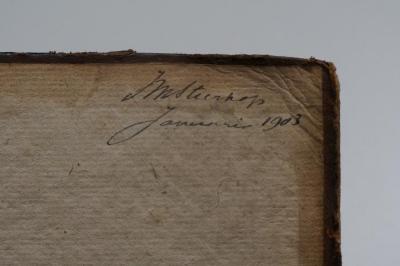 JMSteenhop
Januario 1903